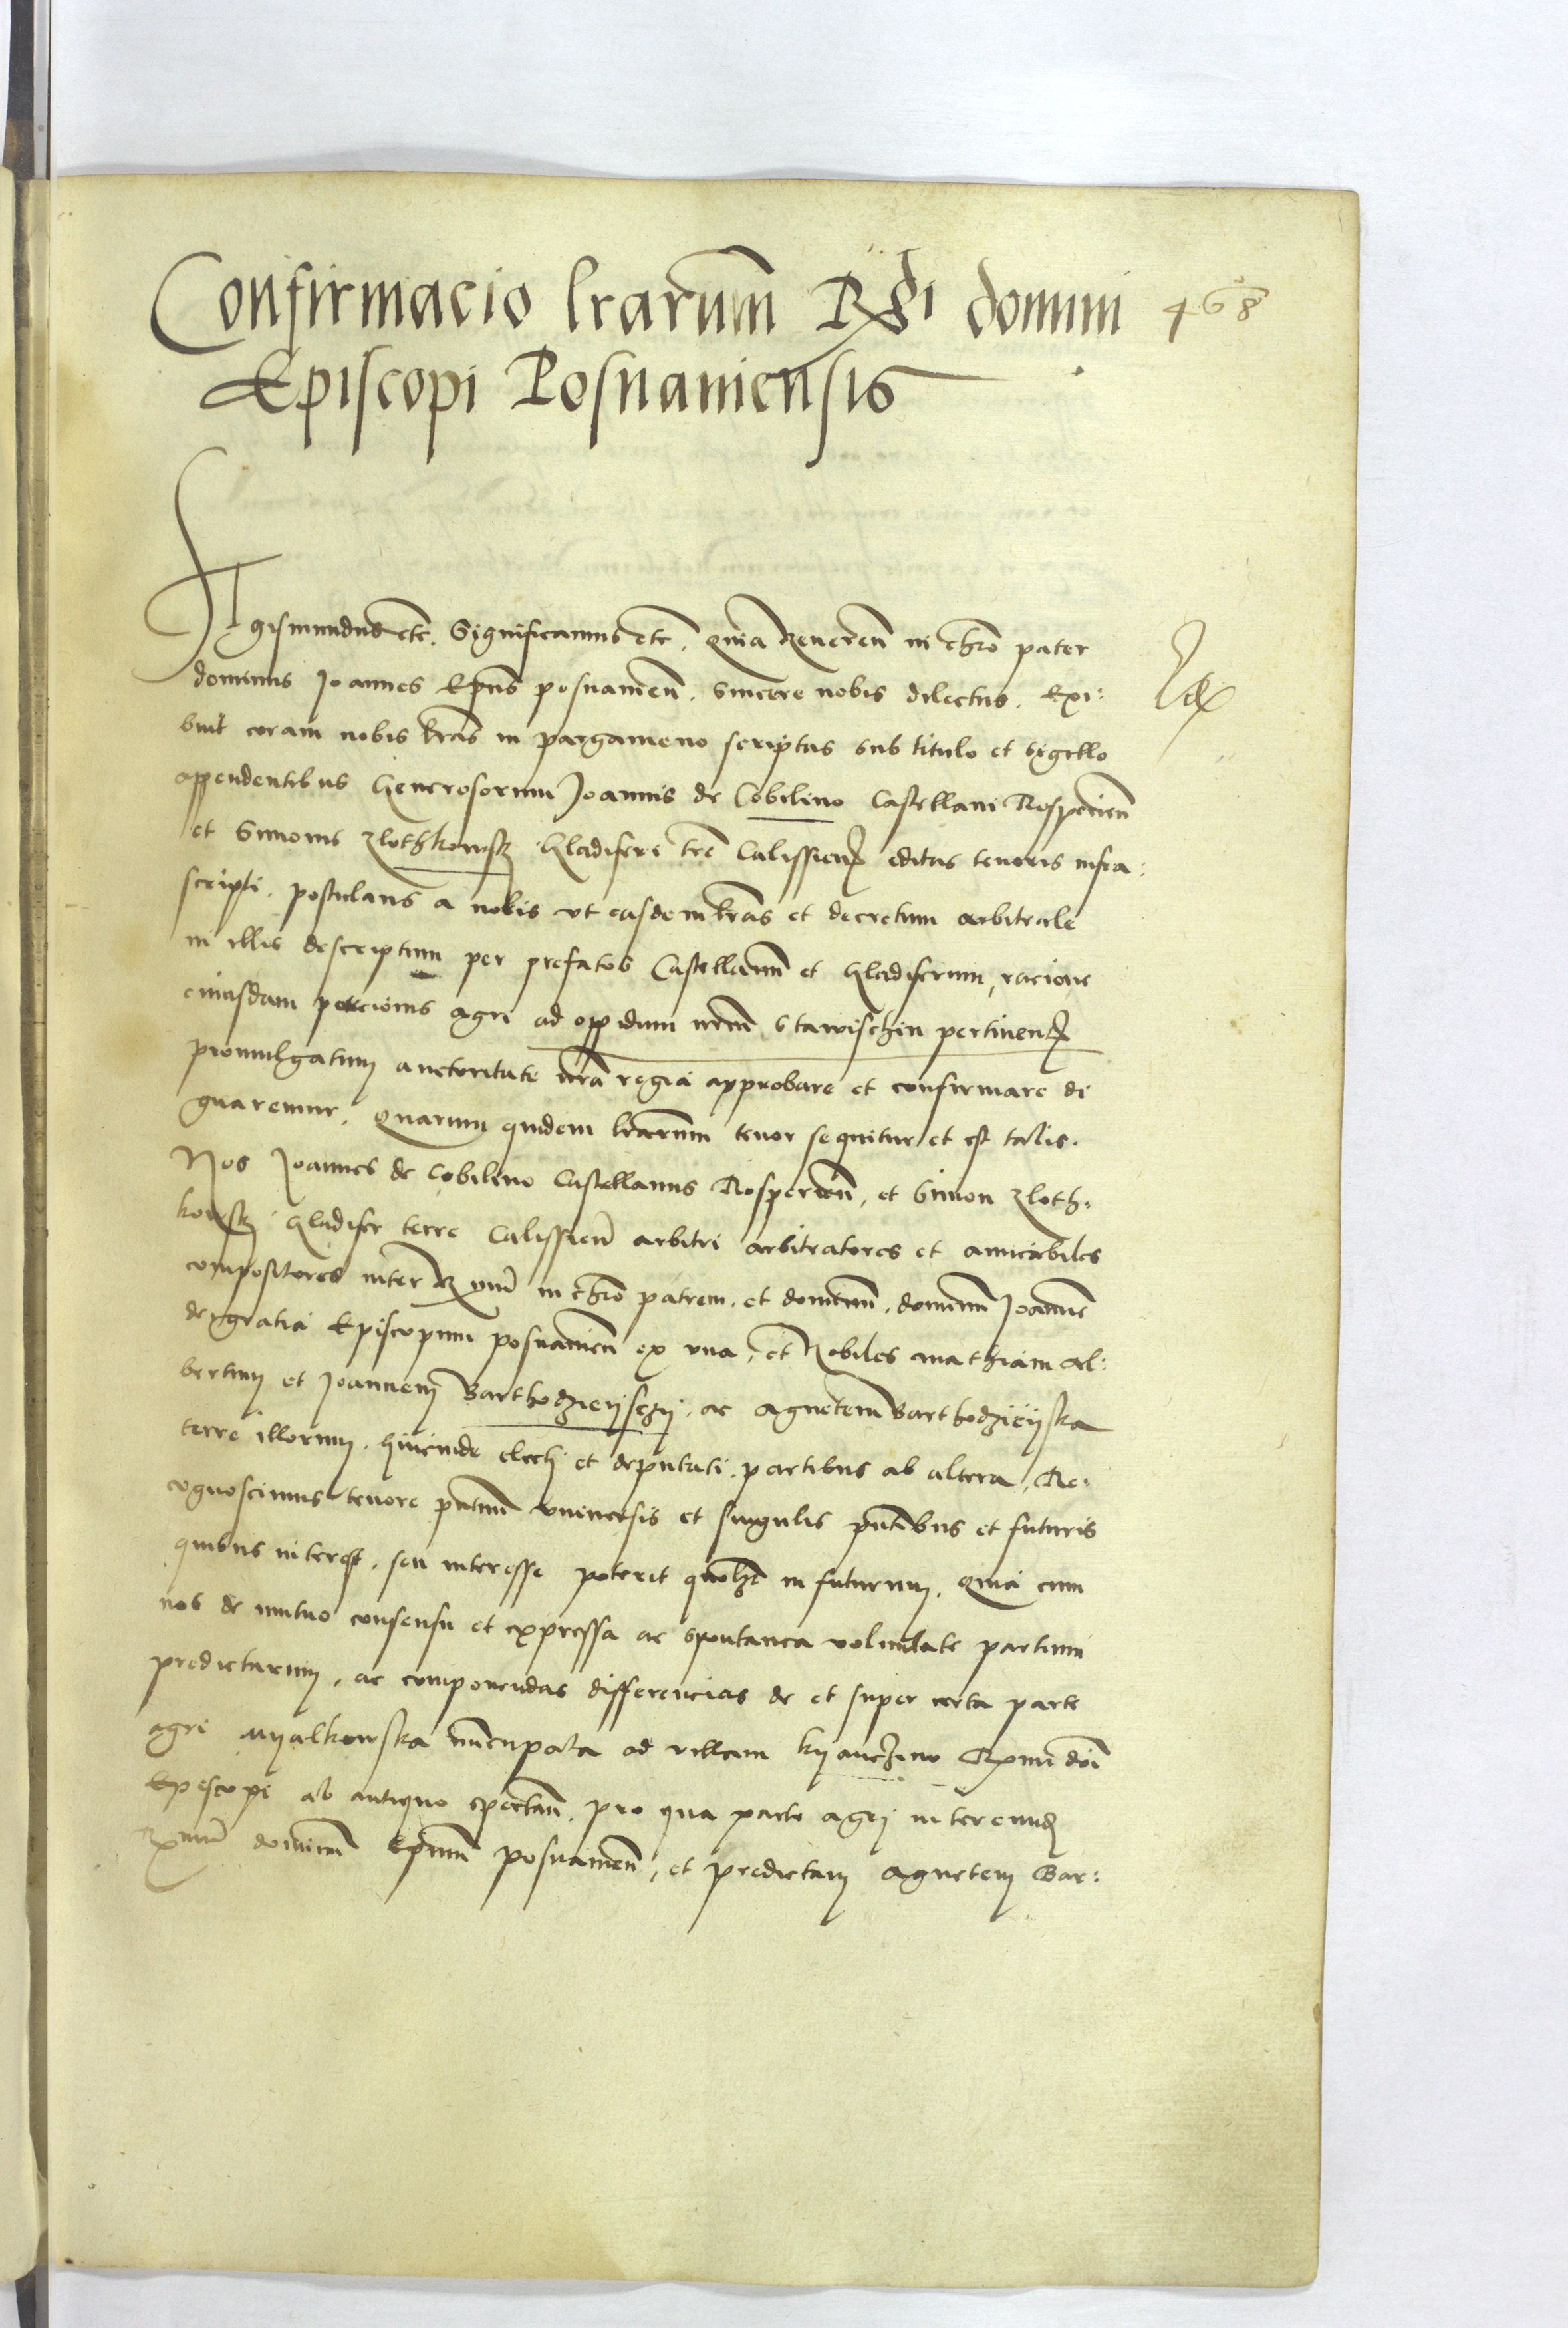 Confirmacio lrarum Rdi domini 468
Episcopi Posnaniensis
Sigismundus etc. Significamus etc. Quia Reveren in chro pater
dominus Joannes Epus posnanien. sincere nobis dilectus. Exi:
buit coram nobis lras in pargameno scriptas sub titulo et sigillo
appendentibus Generosorum Joannis de Cobilino Castellani Rosperien
et Simonis Zlothkowsky Gladiferi tre Calissien editas tenoris infra:
scripti. postulans a nobis ut easdem lras et decretum arbitrale
in illis descriptum per prefatos Castellanum et Gladiferum, racione
cuiusdam porcionis agri ad oppidum nrm Stawischin pertinen
promulgatum auctoritate nra regia approbare et confirmare di
gnaremur. Quarum quidem lrarum tenor sequitur et est talis.
Nos Joannes de Cobilino Castellanus Rosperien, et Simon Zloth:
kowsky Gladifer terre Calissien arbitri arbitratores et amicabiles
compositores inter Rxmu in chro patrem. et dominum. dominum Joannem
dei gratia Episcopum posnanien ex una, et Nobiles mathiam Al:
bertum et Joannem Barthodzieyschy. ac Agnetem Barthodzieyska
terre illorum. hincinde electi et deputati. partibus ab altera, Re:
cognoscimus tenore pntium universis et singulis pntibus et futuris
quibus interest. seu interesse poterit quolzt in futurum. Quia cum
nos de mutuo consensu et expressa ac spontanea voluntate partium
predictarum, ac componendas differencias de et super certa parte
agri Myalkowska nuncupata ad villam kyanczino Rxmi doi
Episcopi ab antiquo spectan. pro qua parte agri inter eund
Rxmu dominum Epum posnanien, et predictam Agnetem Bar: